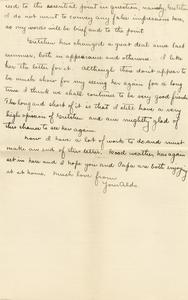 used to the essential point in question, namely, Gretchen
I do not want to convey any false impressions here,
so my words will be brief and to the point.
Gretchen has changed a great deal since last
summer, both in appearance and otherwise. I like
her the better for it. Although this don't appear to
be much show for my seeing her again for a long
time I think we shall continue to be very good friends
The long and short of it is that I still have a very
high opinion of Gretchen and am mighty glad of
this chance to see her again.
Now I have a lot of work to do and must
make an end of this letter. Good weather has again
set in here and I hope you and Papa are both enjoying
it at home. Much love from
Your Aldo